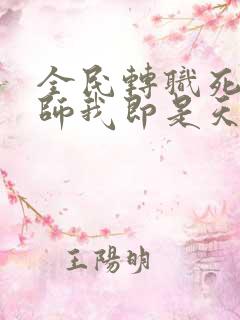 全民轉職死
師我即是天
王陽明